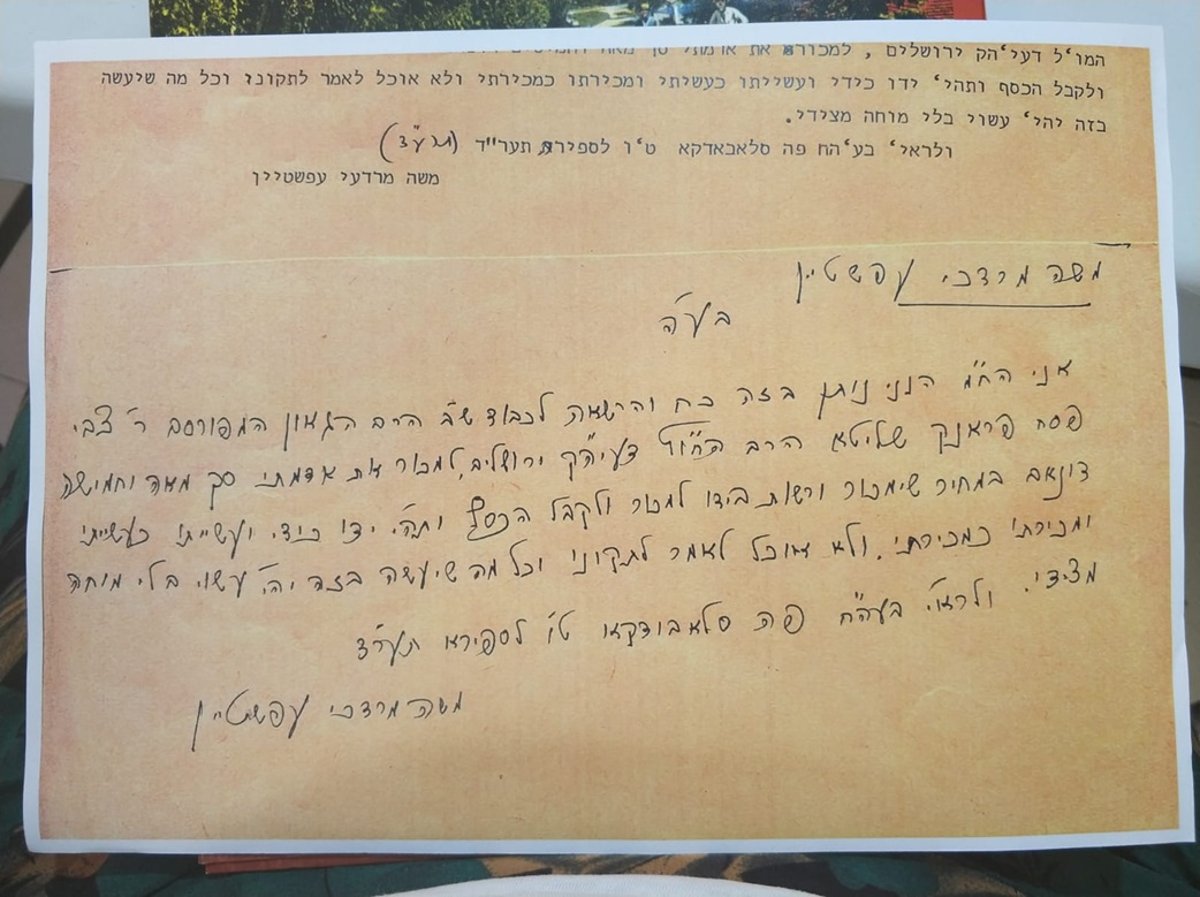 המו'ל דעי'הק ירושלים, למכור את אדמתי סך מאה
ולקבל הכסף ותהי' ידו כידי ועשייתו כעשיתי ומכירתו כמכירתי ולא אוכל לאמר לתקוני וכל מה שיעשה
בזה יהי' עשוי בלי מוחה מצידי.
ולראי' בע'הח פה סלאבאדקא ט'ו לספירת תער"ד (תרע"ד)
משה מרדעי עפשטיין
משה מרדכי עפשטיין
בע"ה
אני הח"מ הנני נותן בזה כח והרשאה לכבוד ש"ב הרב הגאון המפורסם ר' צבי
פסח פראנק שליטא הרב דעיה"ק ירושלים, למכור את אדמתי סך מאה וחמישה
דונאם במחיר שימכור ורשות בידו למכור ולקבל הכסף ותהי' ידו כידי ועשייתו כעשייתי
ומכירתו כמכירתי. ולא אוכל לאמר לתקוני וכל מה שיעשה בזה יהי' עשוי בלי מוחה
מצידי. ולראי' בעה"ח פה סלאבודקא ט"ו לספירא תער"ד
משה מרדכי עפשטיין